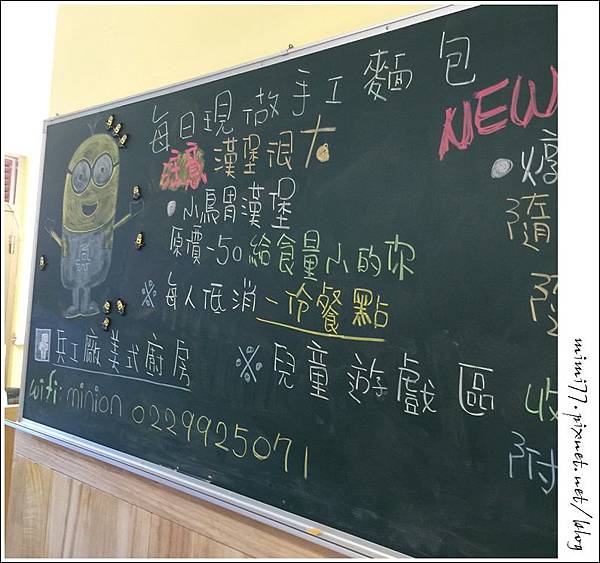 每日現做手工麵包
注意 漢堡很大
• 小鳥胃漢堡
原價-50給食量小的你
※ 每人低消一份餐點
兵工廠美式廚房
wifi: minion 0229925071
※ 兒童遊戲區
NEW
隨
收
附
兵
mimi77.pixnet.net/blog